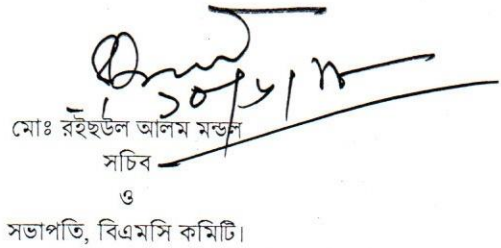 মোঃ রইছউল আলম মন্ডল
সচিব
ও
সভাপতি, বিএমসি কমিটি।